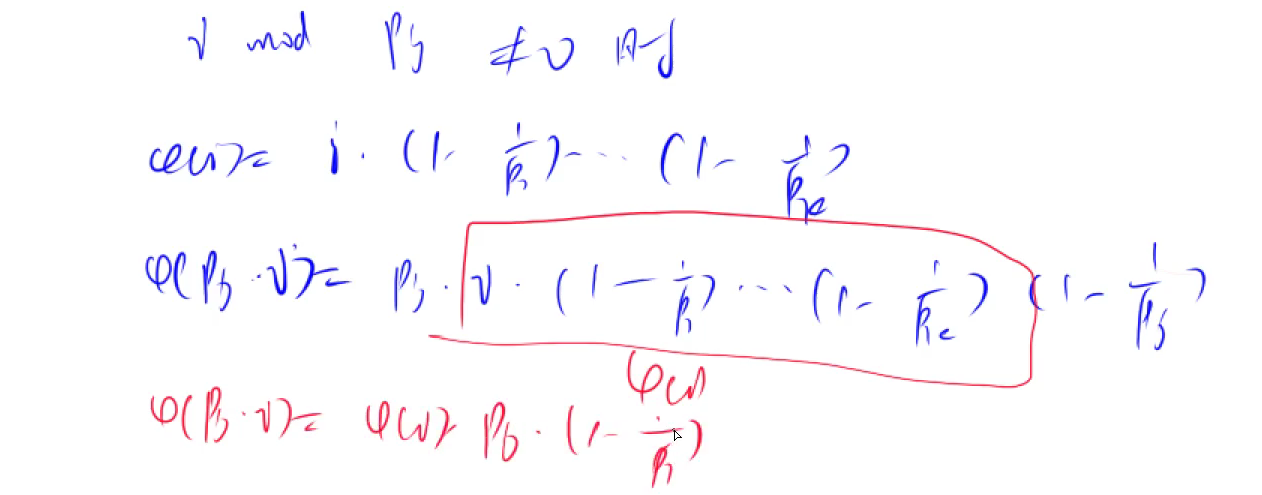 i mod Pj ≠ 0 时
φ(i) = i · (1 - 1/P1) ··· (1 - 1/Pk)
φ(Pj · i) = Pj · i · (1 - 1/P1) ··· (1 - 1/Pk) (1 - 1/Pj)
φ(i)
φ(Pj · i) = φ(i) · Pj · (1 - 1/Pj)